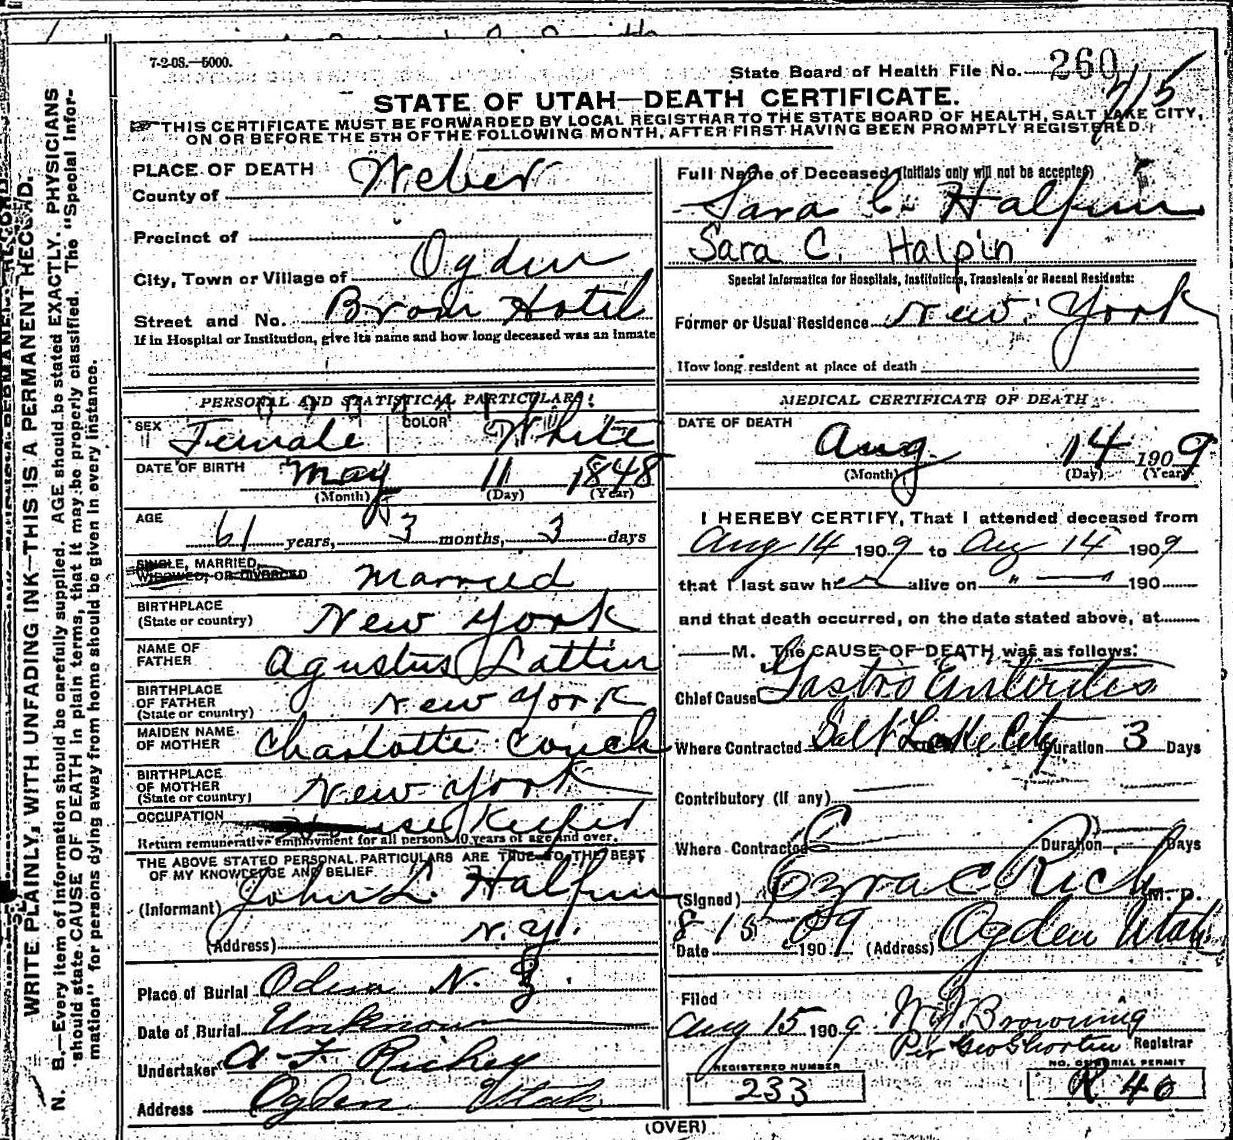 7-2-08.—5000.
State Board of Health File No. 260
715
STATE OF UTAH—DEATH CERTIFICATE.
THIS CERTIFICATE MUST BE FORWARDED BY LOCAL REGISTRAR TO THE STATE BOARD OF HEALTH, SALT LAKE CITY,
ON OR BEFORE THE 5TH OF THE FOLLOWING MONTH, AFTER FIRST HAVING BEEN PROMPTLY REGISTERED.
WRITE PLAINLY, WITH UNFADING INK—THIS IS A PERMANENT RECORD.
N. B.—Every item of information should be carefully supplied. AGE should be stated EXACTLY. PHYSICIANS
should state CAUSE OF DEATH in plain terms, that it may be properly classified. The "Special Infor-
mation" for persons dying away from home should be given in every instance.
PLACE OF DEATH
County of Weber
Precinct of
City, Town or Village of Ogden
Street and No. Brom Hotel
If in Hospital or Institution, give its name and how long deceased was an inmate
PERSONAL AND STATISTICAL PARTICULARS:
SEX Female COLOR White
DATE OF BIRTH May 11 1848
(Month) (Day) (Year)
AGE 61 years, 3 months, 3 days
SINGLE, MARRIED,
WIDOWED, OR DIVORCED Married
BIRTHPLACE
(State or country) New York
NAME OF
FATHER Agustus Lattin
BIRTHPLACE
OF FATHER
(State or country) New York
MAIDEN NAME
OF MOTHER Charlotte Couch
BIRTHPLACE
OF MOTHER
(State or country) New York
OCCUPATION House Keeper
Return remunerative employment for all persons 10 years of age and over.
THE ABOVE STATED PERSONAL PARTICULARS ARE TRUE TO THE BEST
OF MY KNOWLEDGE AND BELIEF
(Informant) John L. Halpin
(Address) N.Y.
Place of Burial N. Y.
Date of Burial Unknown
Undertaker A. F. Richey
Address Ogden Utah
Full Name of Deceased (Initials only will not be accepted)
Sara C. Halpin
Sara C. Halpin
Special Information for Hospitals, Institutions, Transients or Recent Residents:
Former or Usual Residence New York
How long resident at place of death
MEDICAL CERTIFICATE OF DEATH
DATE OF DEATH
Aug. 14 1909
(Month) (Day) (Year)
I HEREBY CERTIFY, That I attended deceased from
Aug 14 1909 to Aug 14 1909
that I last saw her alive on " — " 190
and that death occurred, on the date stated above, at
M. The CAUSE OF DEATH was as follows:
Chief Cause Gastro Enterites
Where Contracted Salt Lake City Duration 3 Days
Contributory (if any)
Where Contracted Duration Days
(Signed) Ezra C Rich M. D.
Date 8 15 09 190 9 (Address) Ogden Utah
Filed
Aug 15 1909 W J. Browning
Per Geo Shorten Registrar
REGISTERED NUMBER
233
NO. OF BURIAL PERMIT
R 40
(OVER)